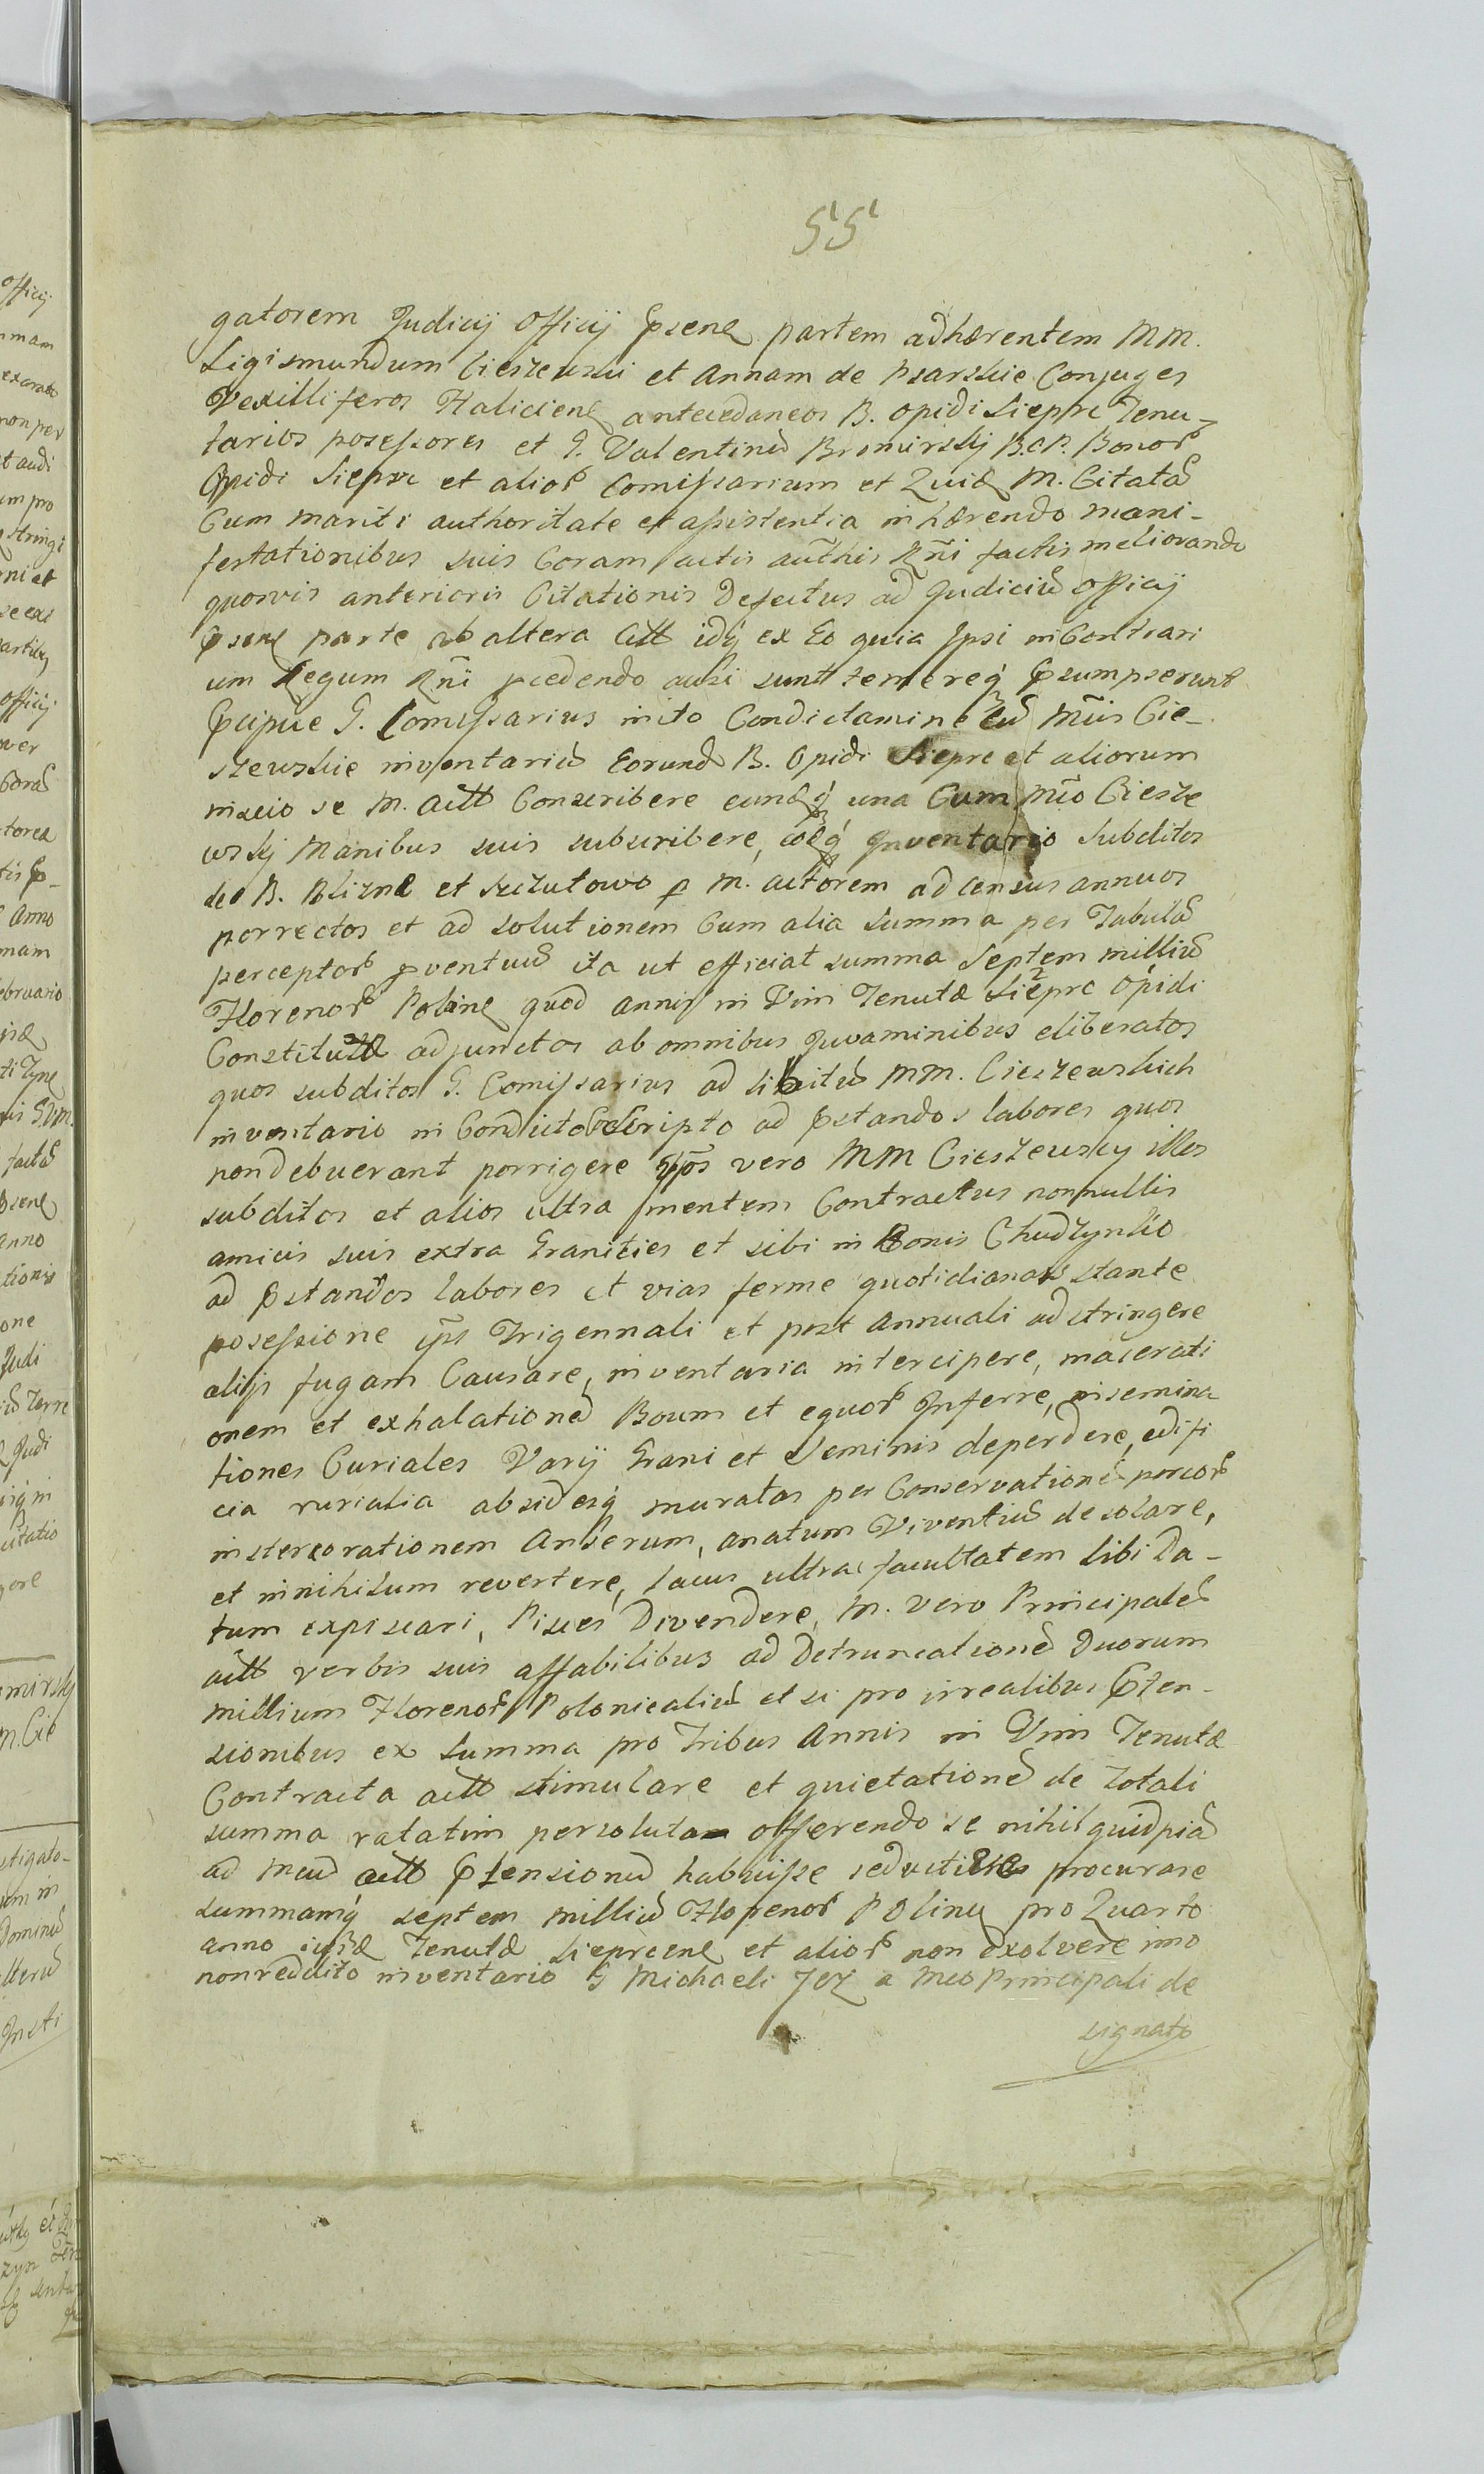 55
gatorem Judicij Officij partem adhærentem MM.
Sigismundum Cieszewski et Annam de Psarskie Conjuges
Vexilliferos Haliciens antecedaneos B. opidi Sieprc Tenu-
tarios possessores et G. Valentinũ Bromirskij B.C.P. Bonor
Opidi Sieprc et alior Comissarium et M. Citatã
Cum mariti authoritate et assistentia inhærendo mani-
festationibus suis Coram actis authis Rñi factis meliorando
quorvis anterioris Citationis Defectus ad Judiciũ officij
parte ab altera Citt idq ex Eo quia Ipsi in Contrari
um Legum Rñi pcedendo ausi sunt temereq psumpserunt
pcipue G. Comissarius inito Condictamine cũ Mñis Cie-
szewskie inventariũ Eorund B. Opidi Sieprc et aliorum
inscio se M. actt Conscribere eundq una Cum Mco Ciesze
wskj Manibus suis subscribere, Inventario subditos
de B. Blizne et Szczutowo p M. actorem ad census annuos
porrectos et ad solutionem Cum alia summa per Tabulã
perceptor pventuũ ita ut efficiat summa Septem milliũ
Florenor Polonc quod annis in Vim Tenutæ Sieprc Opidi
Constitutæ adjunctos ab omnibus Juvaminibus eliberatos
quos subditos G. Comissarius ad libitũ MM. Cieszewskich
inventario in Condicto ad pstandos labores quos
non debuerant porrigere Ipõs vero MM Cieszewscy illos
subditos et alios ultra mentem Contractus nonnullis
amicis suis extra Granities et sibi in Bonis Chudzynko
ad pstandos labores et vias ferme quotidianas stante
possessione ips Trigennali et post annuali adstringere
alijs fugam Causare, inventaria intercipere, macerati
onem et exhalationẽ Boum et equor Inferre, insemina
tiones Curiales Varij Grani et Seminis deperdere, edifi
cia rurialia absidesq muratas per Conservationẽ porcor
instercorationem Anserum, anatum Viventiũ desolare,
et in nihilum revertere, lacus ultra facultatem sibi Da-
tum expiscari, Pisces Divendere, M. vero Principalẽ
actt verbis suis affabilibus ad Detruncationẽ Duorum
millium Florenor Polonicaliũ et si pro irrealibus pten-
sionibus ex summa pro Tribus Annis in Vim Tenutæ
Contracta actt stimulare et quietationẽ de totali
summa ratatim persoluta offerendo se nihil quidpiã
ad Meũ actt ptensionũ habuisse procurare
summamq septem milliũ Florenor Polinc pro Quarto
anno Tenutæ Sieprcens et alior non exolvere imo
non reddito inventario G Michaeli Joz a Meo Principali de
signato